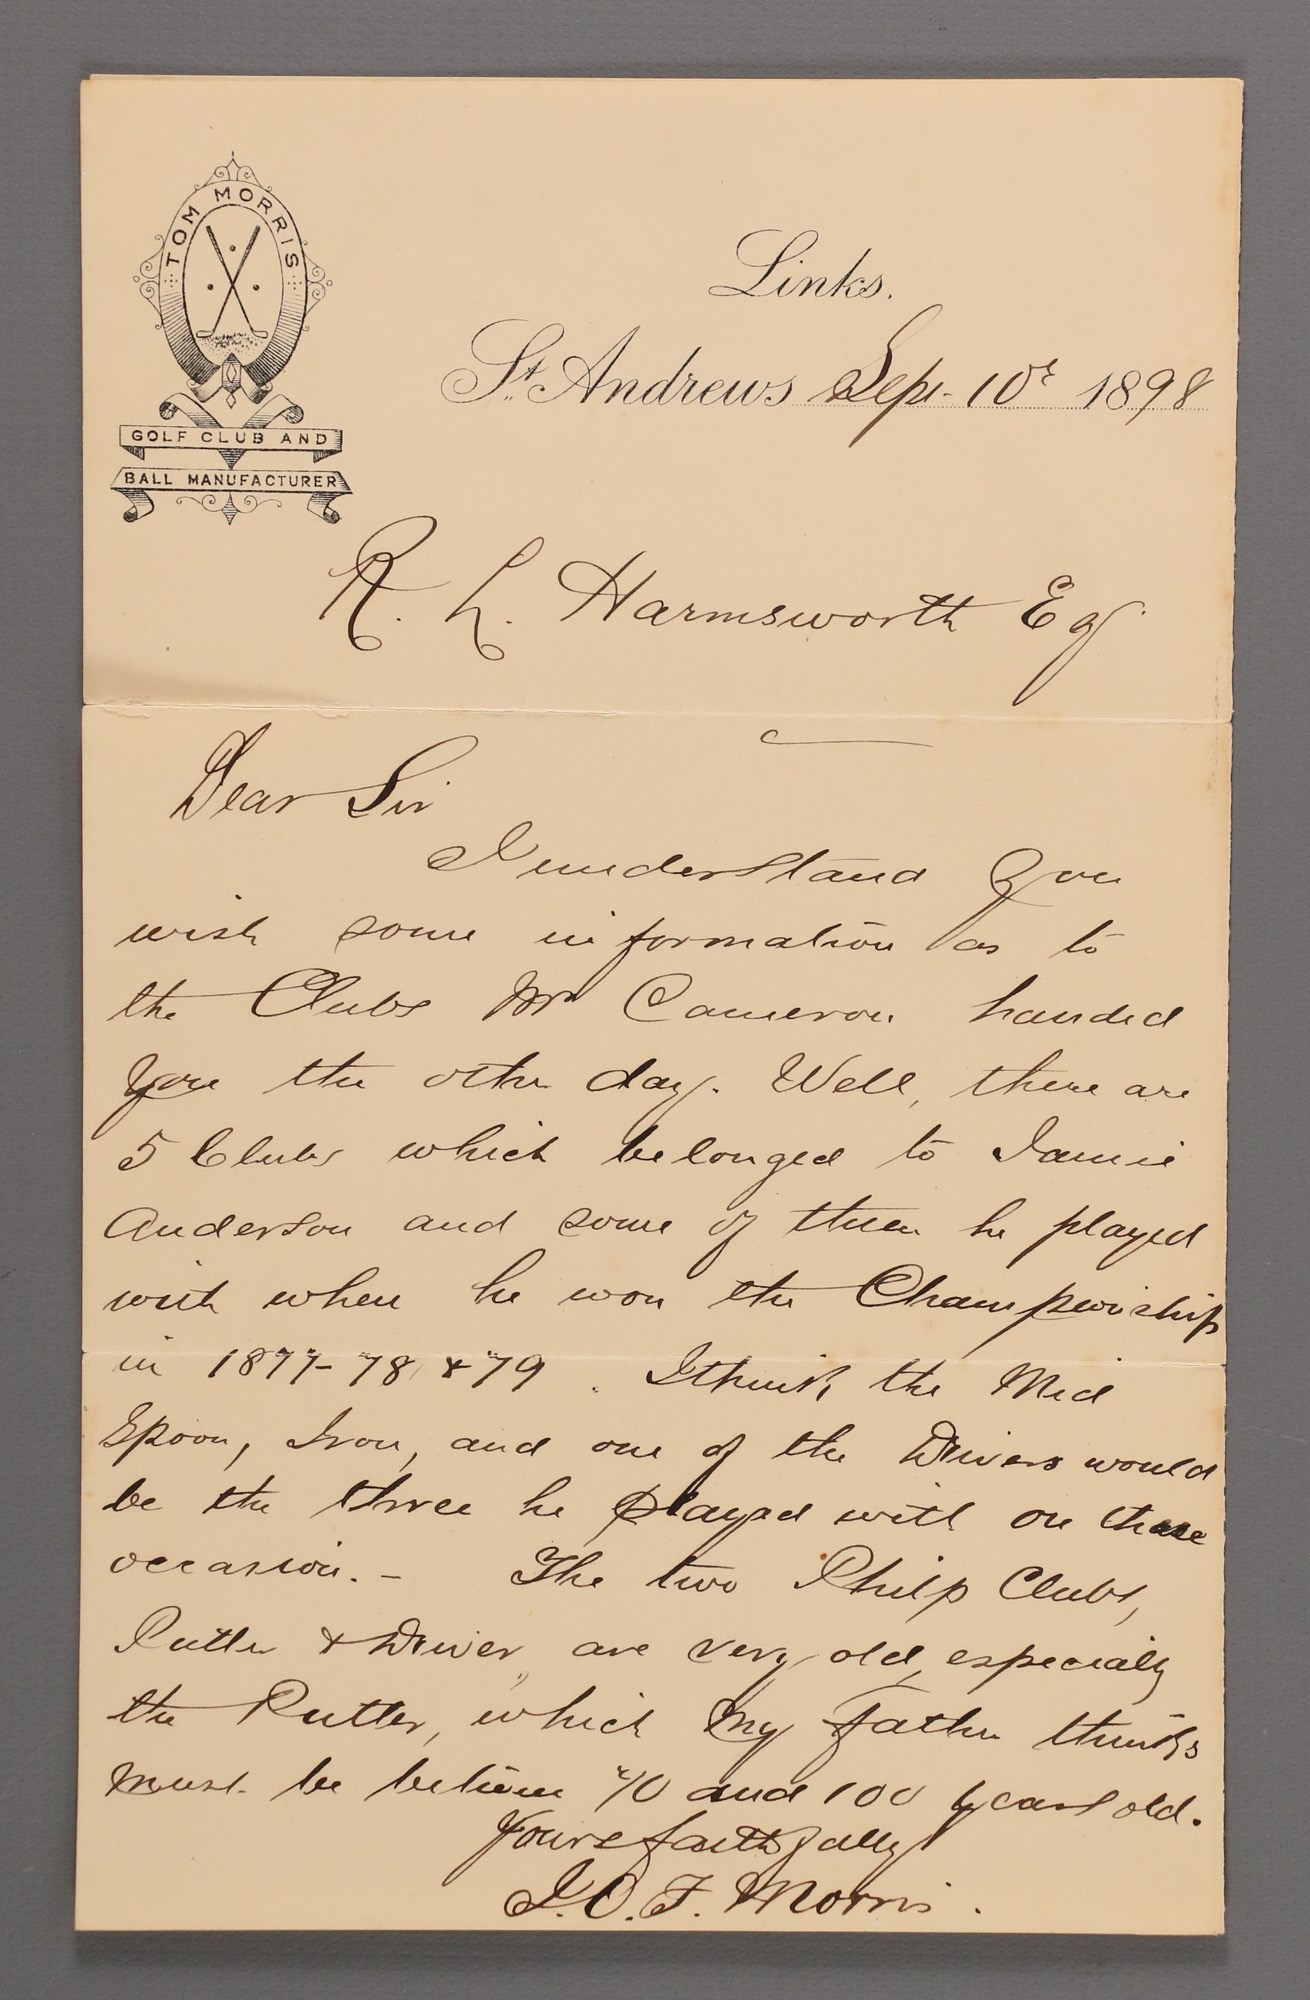 TOM MORRIS
GOLF CLUB AND
BALL MANUFACTURER
Links.
St. Andrews Sept. 10th 1898
R. L. Harmsworth Esq
Dear Sir
I understand you
wish some information as to
the Clubs Mr Cameron handed
you the other day. Well, there are
5 Clubs which belonged to Jamie
Anderson and some of them he played
with when he won the Championship
in 1877-78 & 79. I think the Mid
Spoon, Iron, and one of the Drivers would
be the three he played with on these
occasion. - The two Philp Clubs,
Putter & Driver, are very old, especially
the Putter, which my father thinks
must be between 90 and 100 years old.
Yours faithfully
J. O. F. Morris.